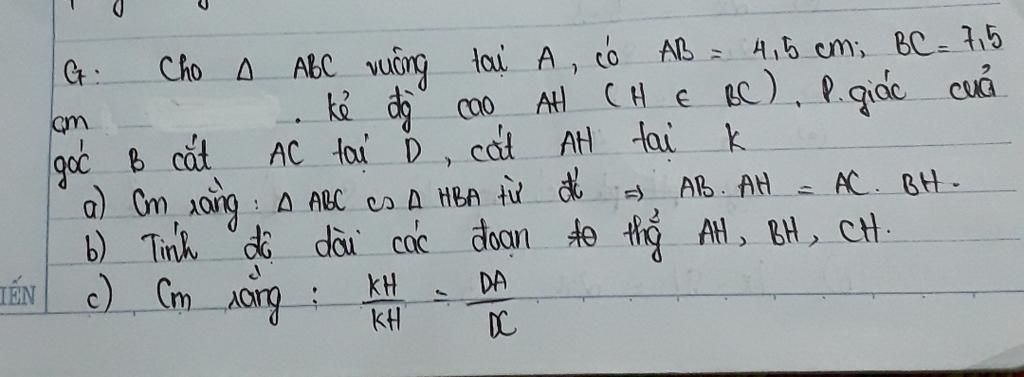 G: Cho Δ ABC vuông tại A, có AB = 4,5 cm; BC = 7,5
cm . kẻ đg̀ cao AH (H ∈ BC). P.giác cuả
góc B cắt AC tại D, cắt AH tại K
a) Cm rằng: Δ ABC ∽ Δ HBA từ đó ⇒ AB. AH = AC. BH.
b) Tính độ dài các đoạn thẳg AH, BH, CH.
c) Cm rằng: KH/KH = DA/DC
IẾN